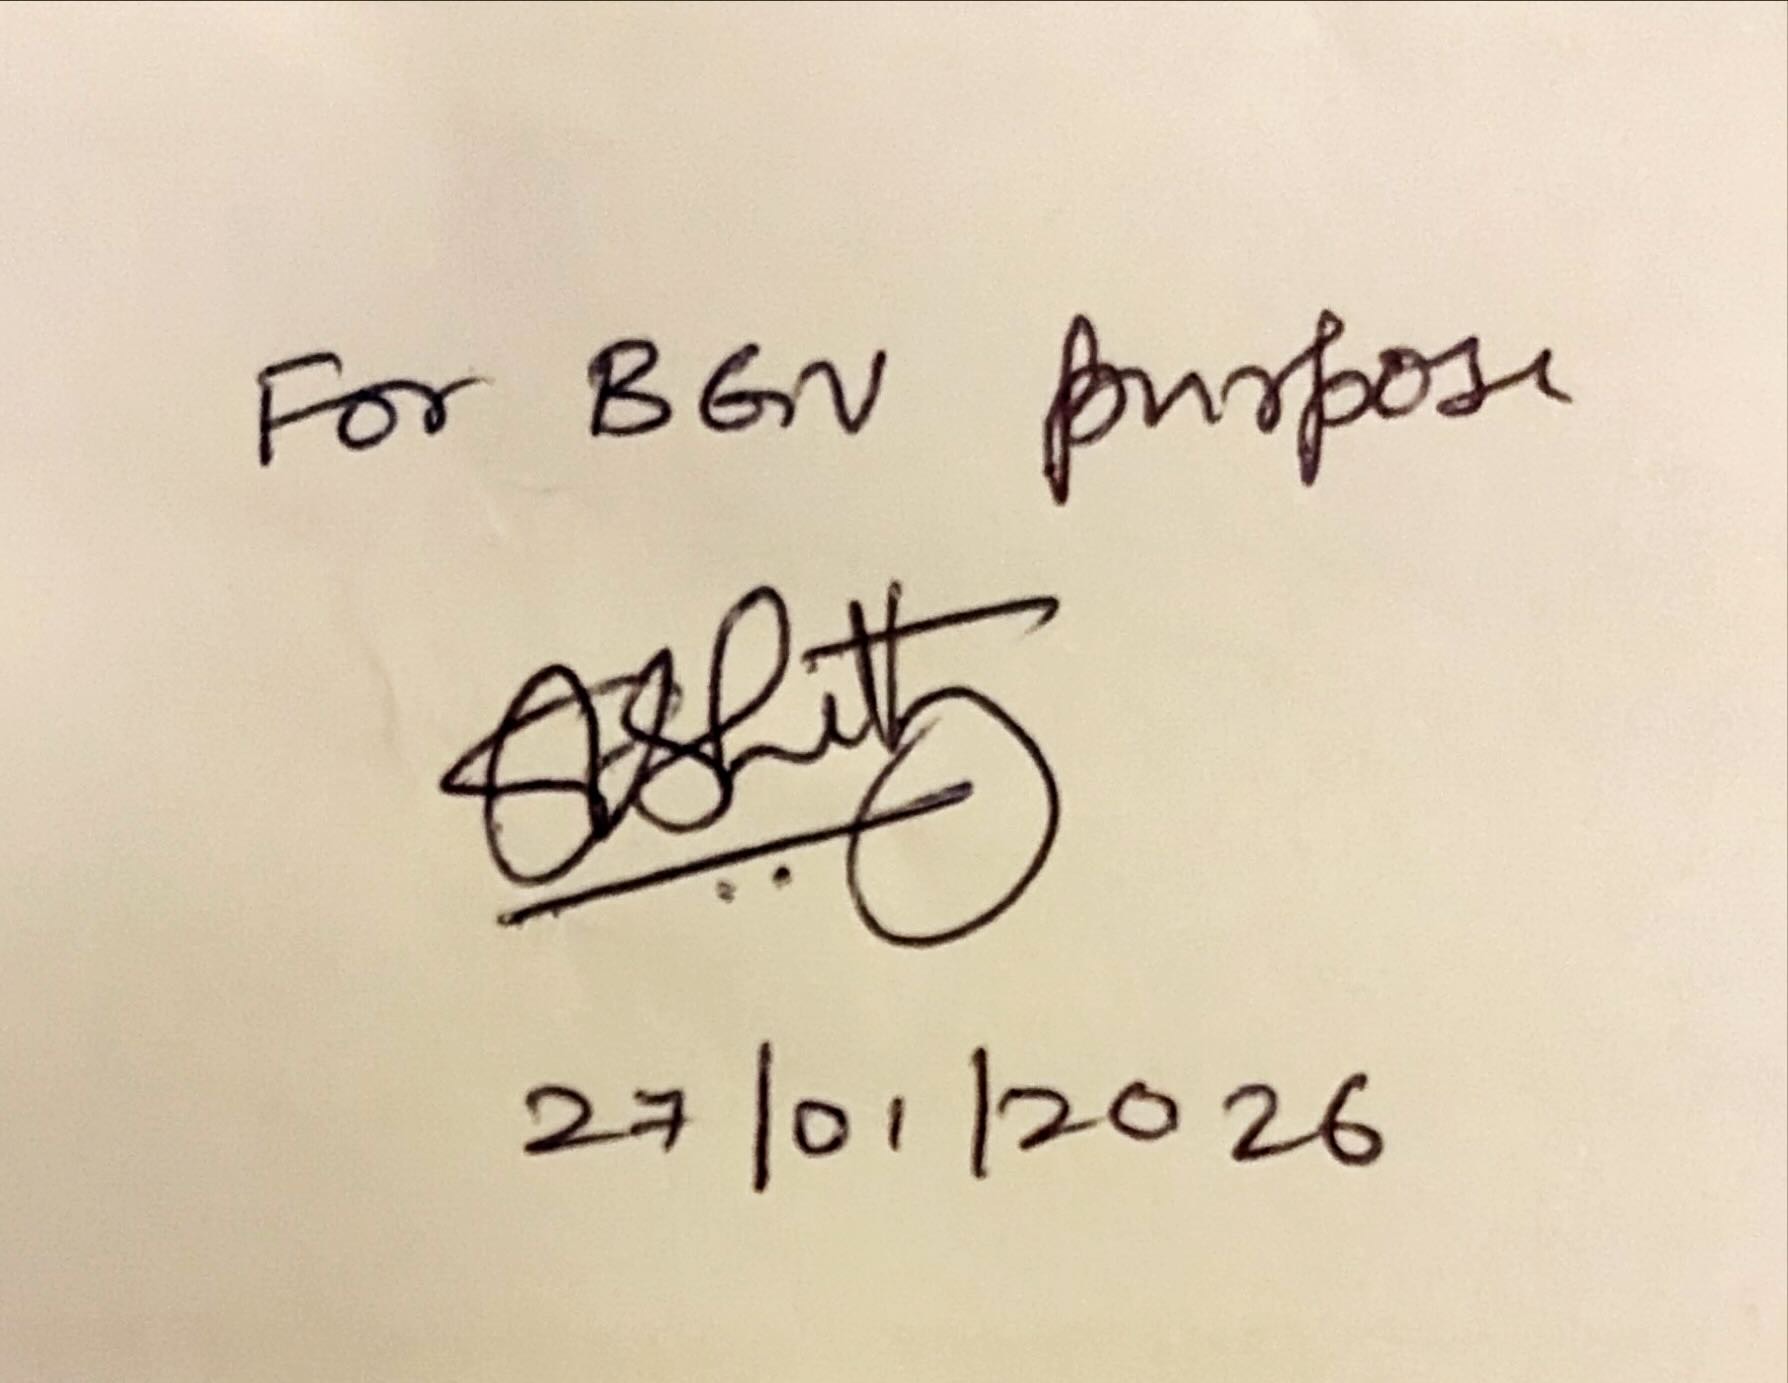 For BGV purpose
27/01/2026